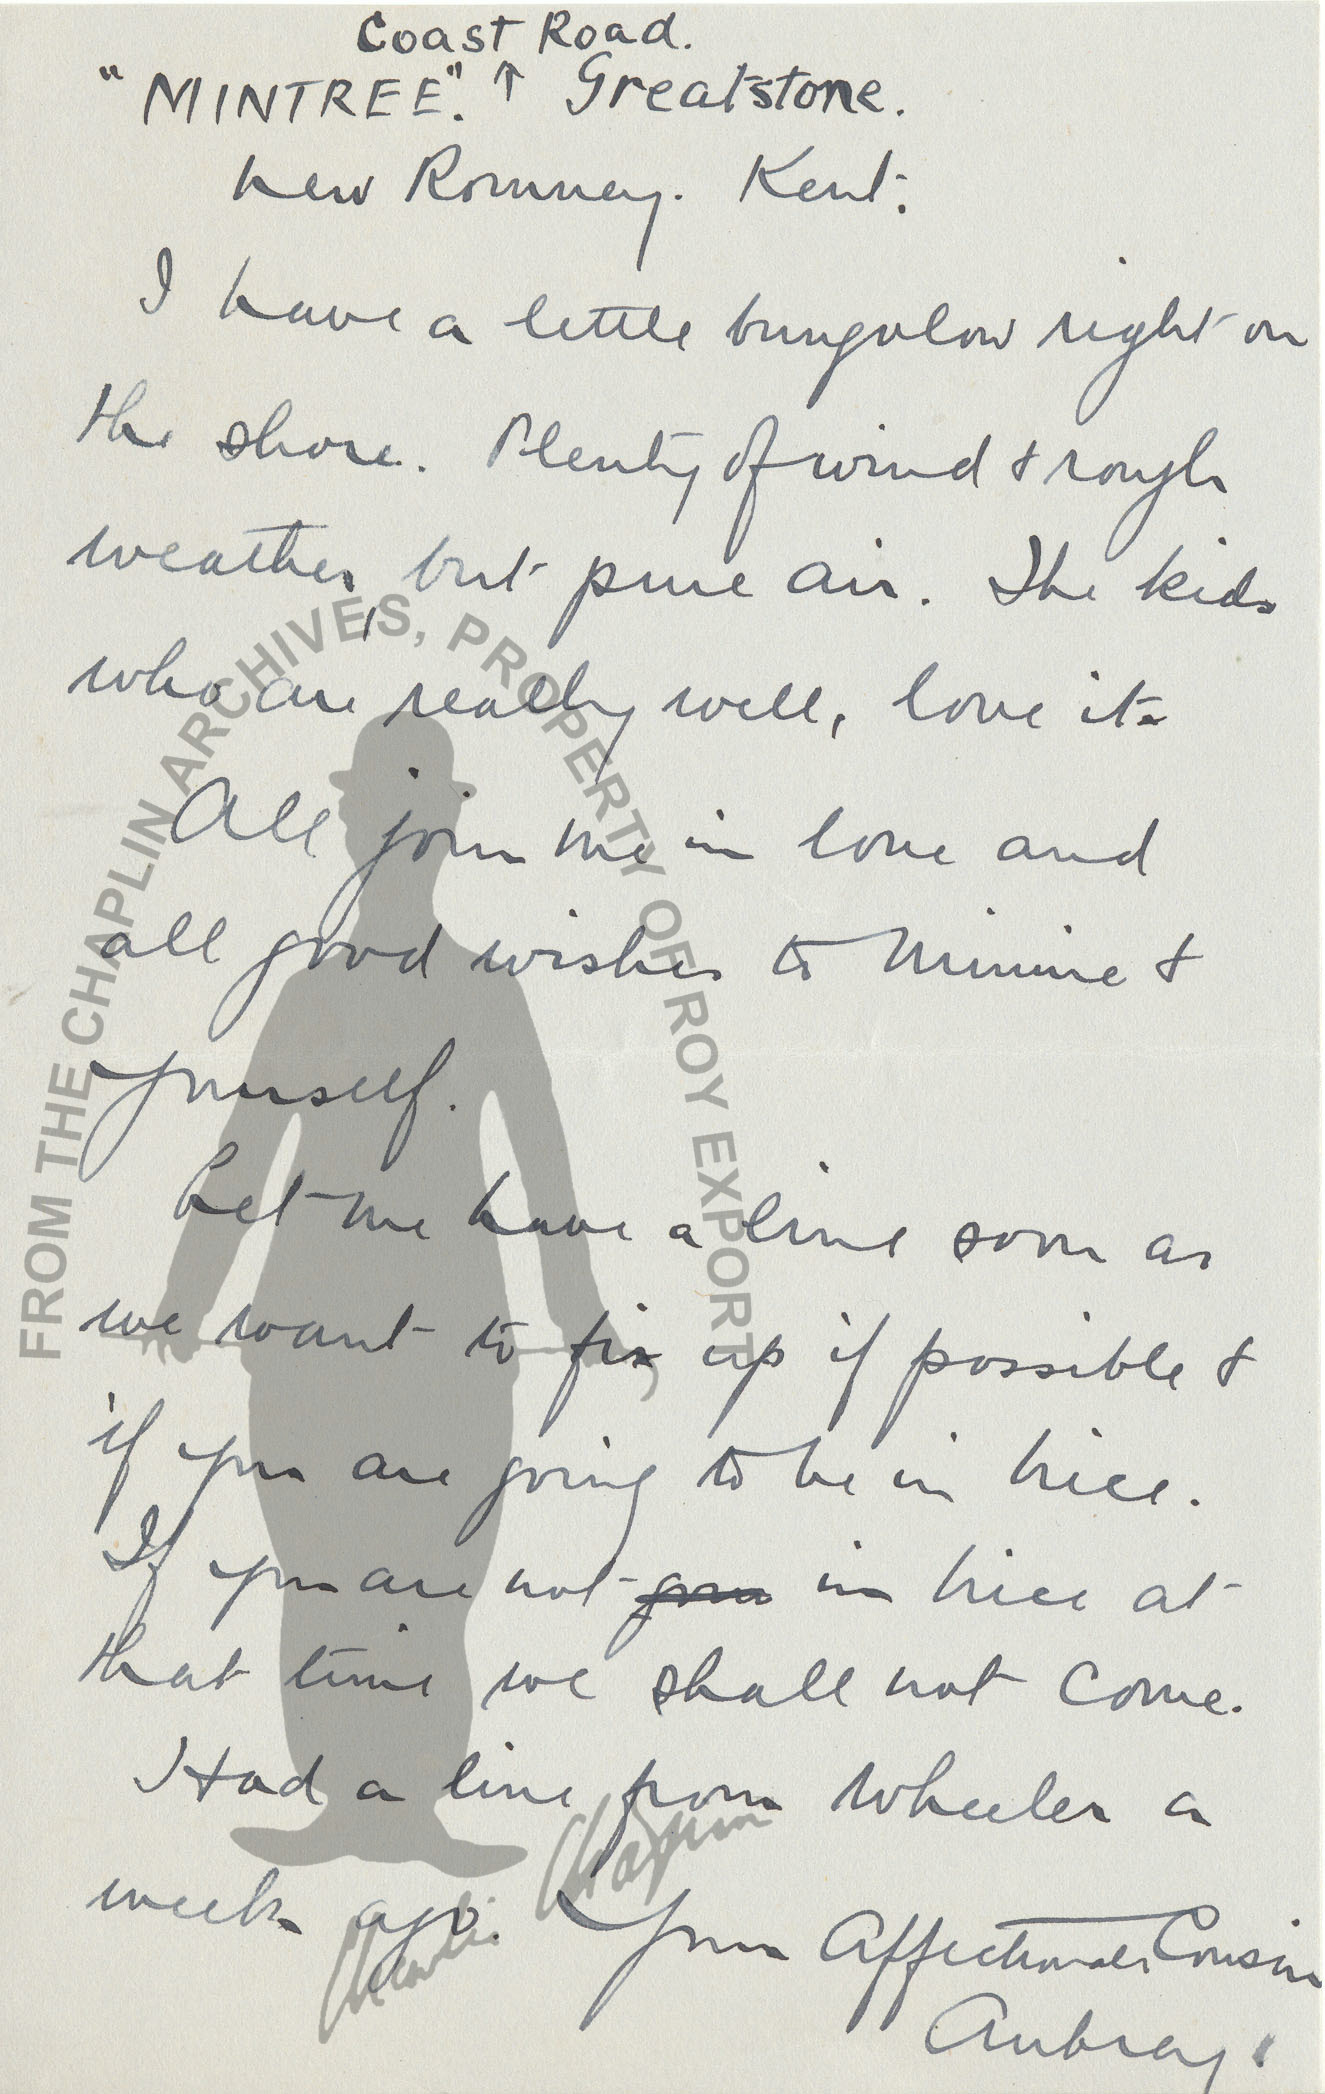 Coast Road.
"MINTREE". ↑ Greatstone.
New Romney. Kent.
I have a little bungalow right on
the shore. Plenty of wind & rough
weather, but pure air. The kids
who are really well, love it.
All join me in love and
all good wishes to Minnie &
yourself.
Let me have a line soon as
we want to fix up if possible &
if you are going to be in Nice.
If you are not you in Nice at
that time we shall not come.
Had a line from Wheeler a
week ago. Your Affectionate Cousin
Aubrey.
FROM THE CHAPLIN ARCHIVES, PROPERTY OF ROY EXPORT
Charlie Chaplin